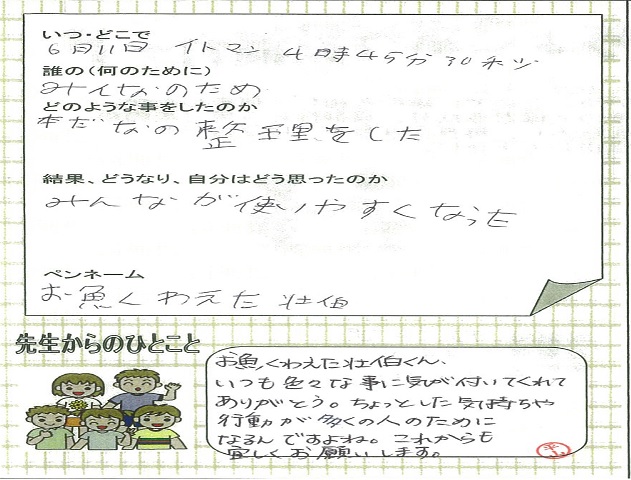 いつ・どこで
6月11日 イトマン 4時45分30秒
誰の(何のために)
みんなのため
どのような事をしたのか
本だなの整理をした
結果、どうなり、自分はどう思ったのか
みんなが使いやすくなった
ペンネーム
お魚くわえた壮伯
先生からのひとこと
お魚くわえた壮伯くん、
いつも色々な事に気が付いてくれて
ありがとう。ちょっとした気持ちや
行動が多くの人のために
なるんですよね。これからも
宜しくお願いします。